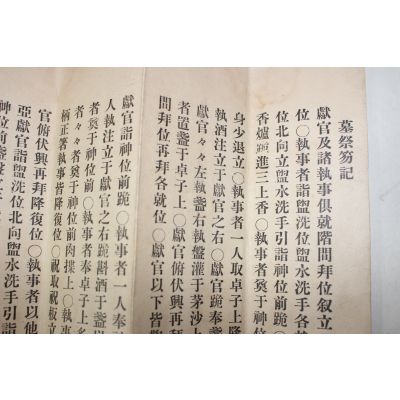 墓祭笏記
獻官及諸執事俱就階間拜位叙立
位〇執事者詣盥洗位盥水洗手各就
位北向立盥水洗手引詣神位前跪〇
香爐跪進三上香〇執事者奠于神位
身少退立〇執事者一人取卓子上降
執酒注立于獻官之右〇獻官跪奉盞
獻官々々左執盞右執盤灌于茅沙上
者置盞于卓子上〇獻官俯伏興再拜
間拜位再拜各就位〇獻官以下皆
獻官詣神位前跪〇執事者一人奉
人執注立于獻官之右跪斟酒于盞
者奠于神位前〇執事者奉卓子上
者々々者奠于神位前肉操上〇執
柄正著執事皆降復位〇祝取祝板立
官俯伏興再拜降復位〇執事者以他
亞獻官詣盥洗位北向盥水洗手引詣
神位前